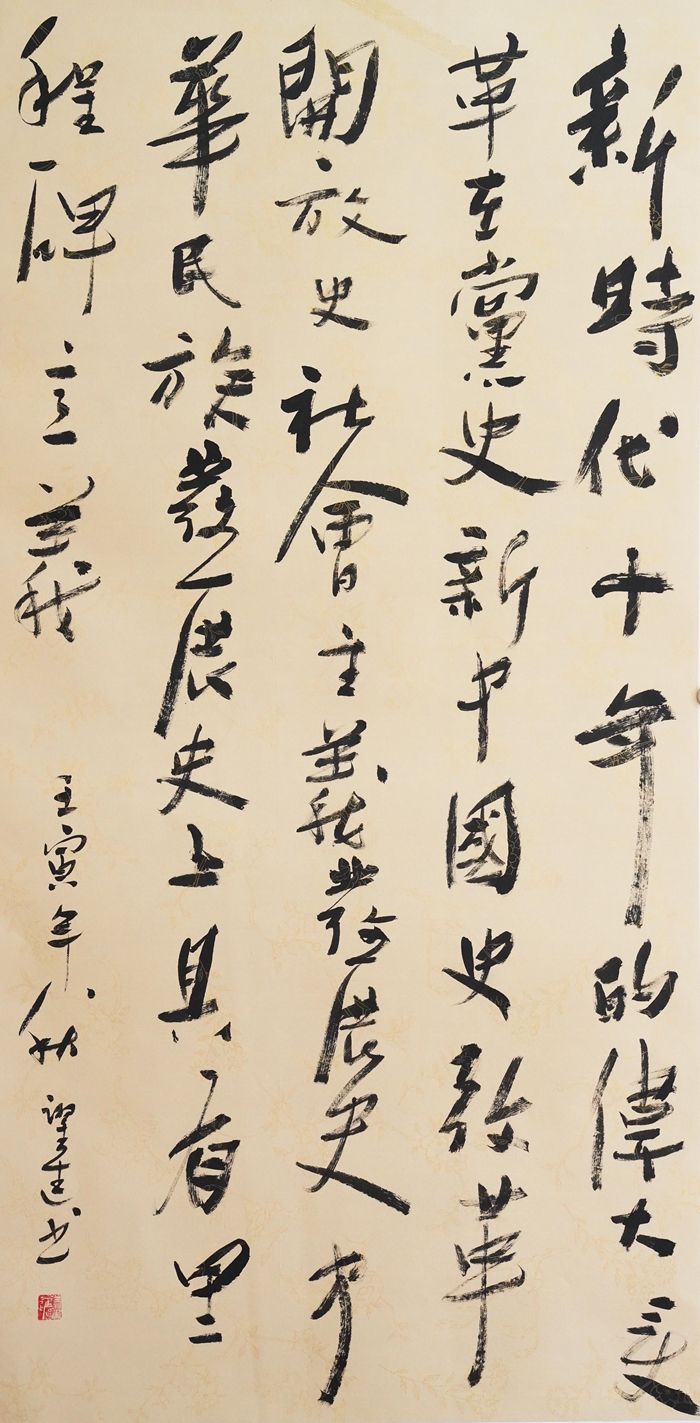 新時代十年的偉大变
革在黨史新中國史改革
開放史社會主義發展史中
華民族發展史上具有里
程碑意義
壬寅年秋 建书